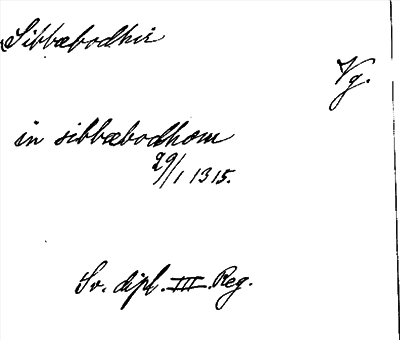 Sibbæbodhir
Vg.
in sibbæbodhom
29/1 1315.
Sv. dipl. III. Reg.